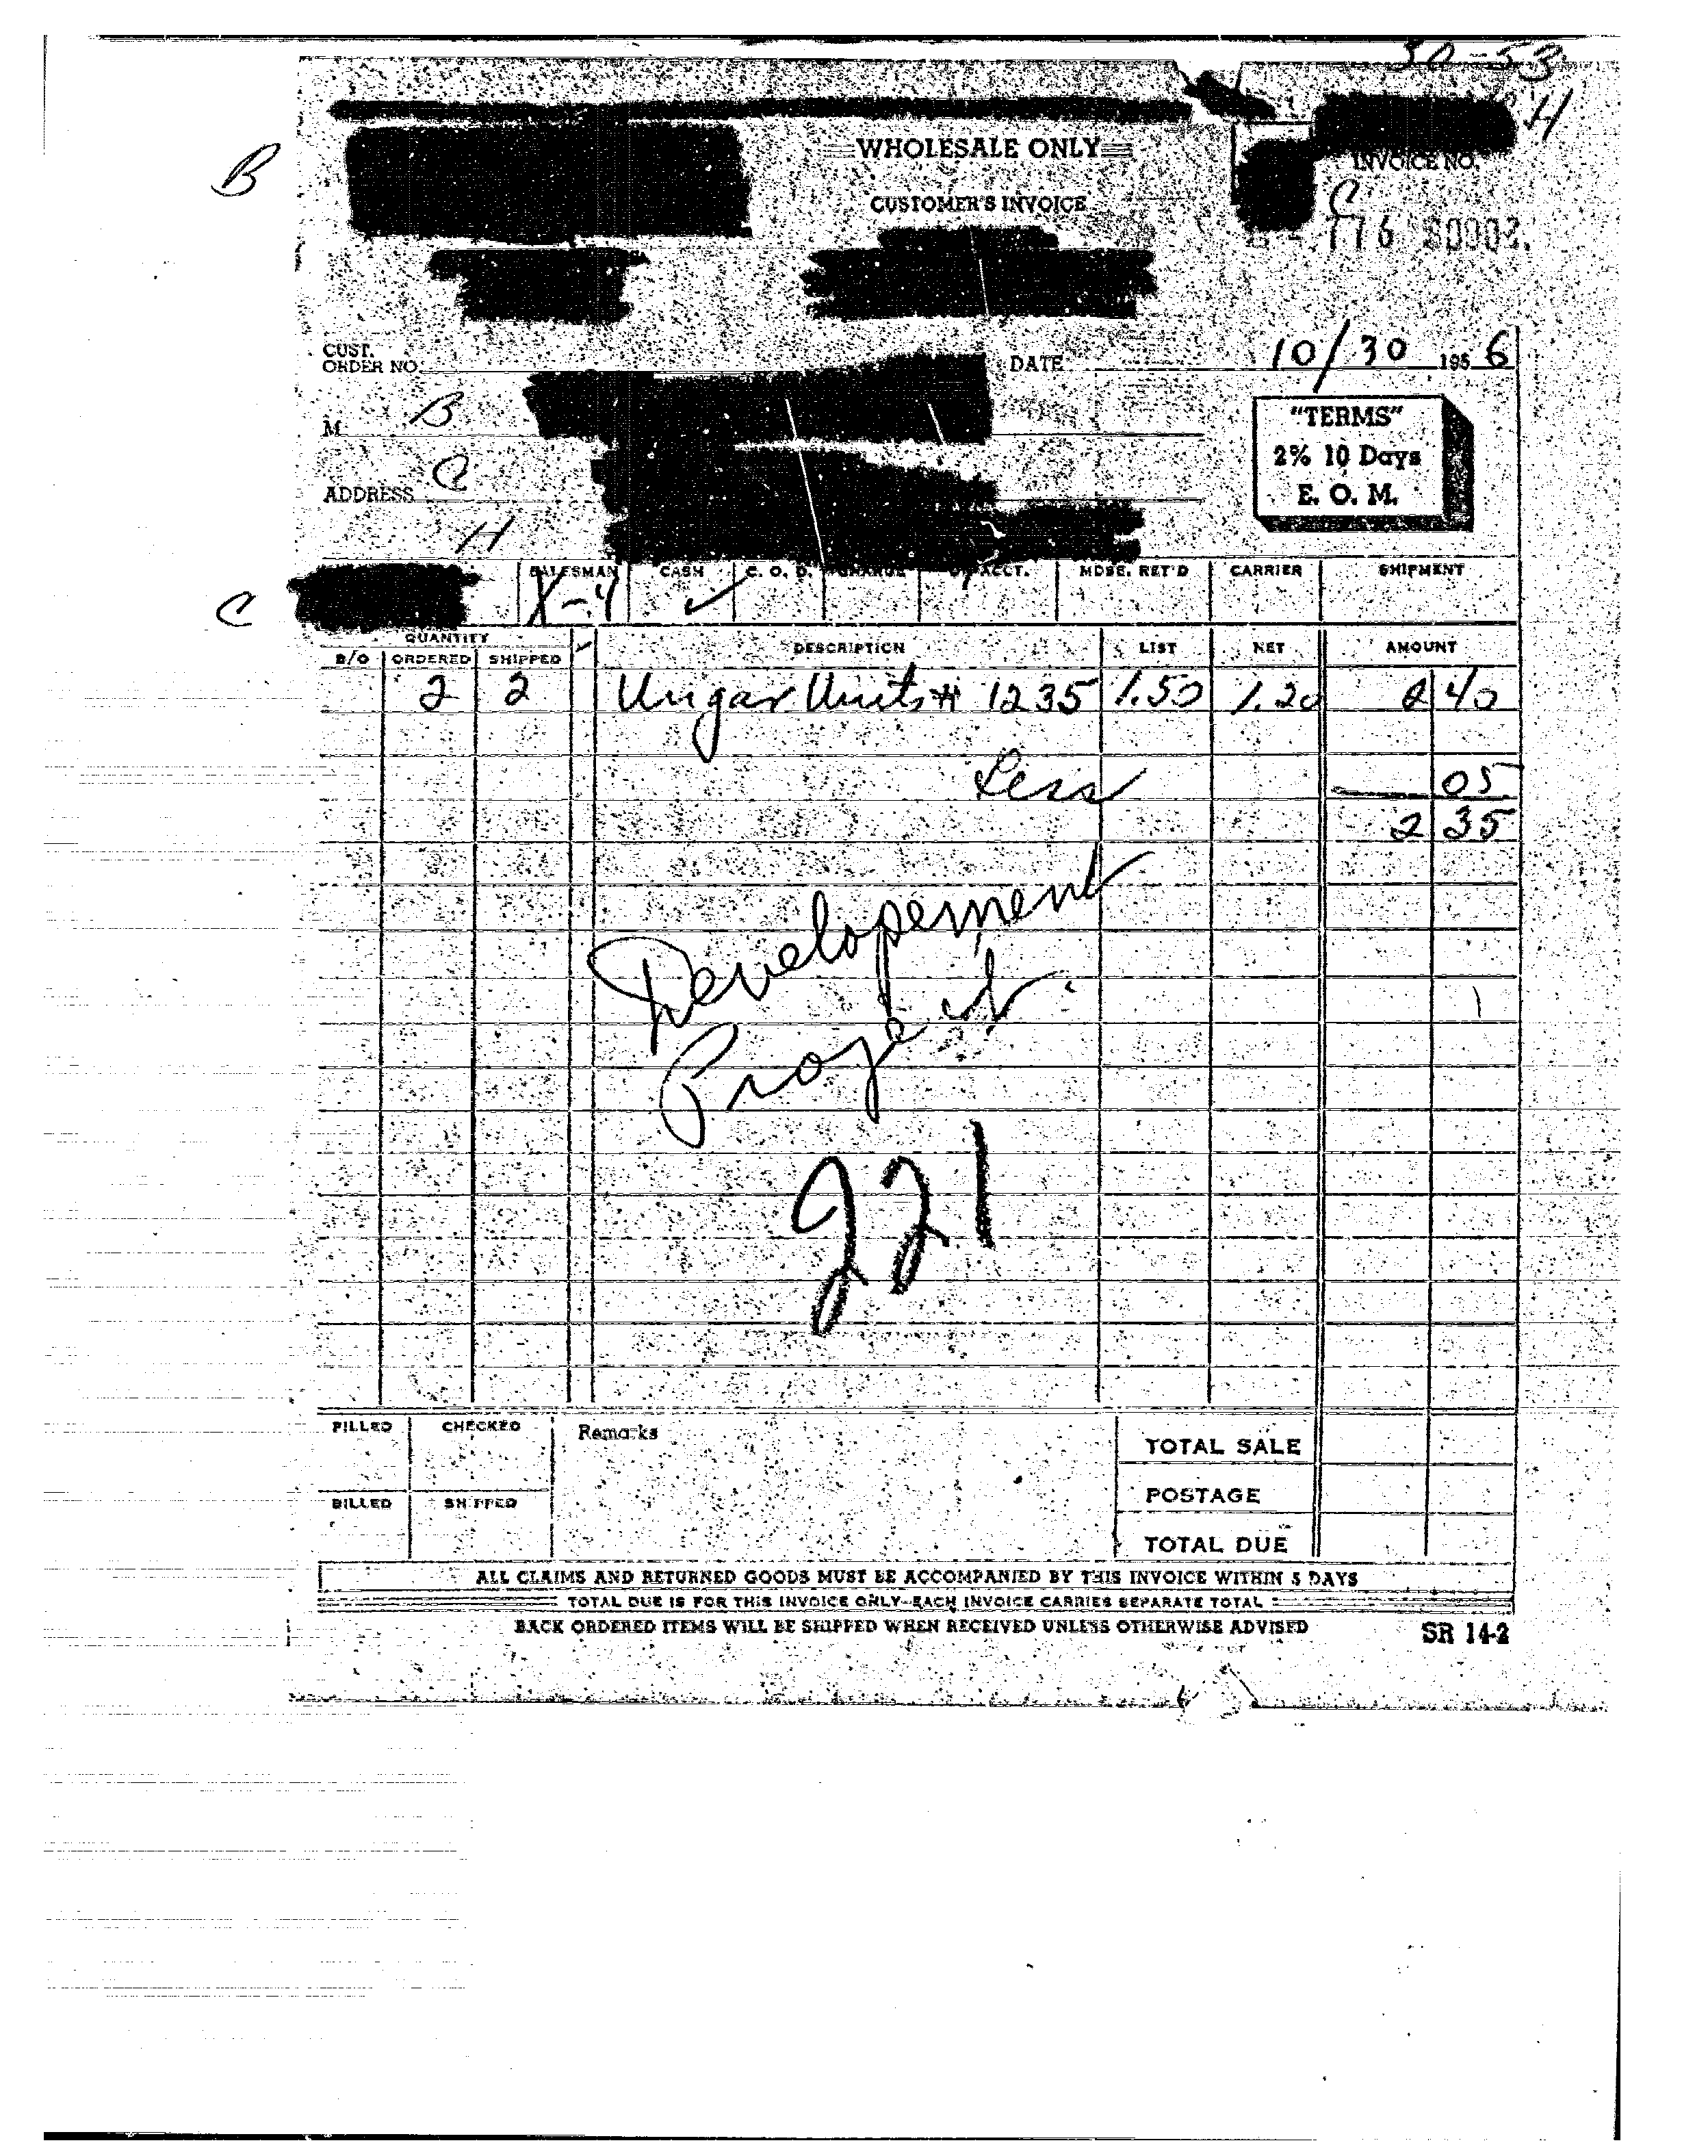 30-53
H
B
WHOLESALE ONLY
INVOICE NO.
CUSTOMER'S INVOICE
C
776 80002
CUST.
ORDER NO.
DATE 10/30 1956
M B
"TERMS"
2% 10 Days
E. O. M.
ADDRESS C
H
C
SALESMAN CASH C. O. D. CHARGE ACCT. MDSE. RET'D CARRIER SHIPMENT
X-4 ✓
QUANTITY
B/O ORDERED SHIPPED ✓ DESCRIPTION LIST NET AMOUNT
2 2 Ungar Units # 1235 1.50 1.20 2 40
Less 05
2 35
Developement
Project
221
FILLED CHECKED Remarks
TOTAL SALE
BILLED SHIPPED
POSTAGE
TOTAL DUE
ALL CLAIMS AND RETURNED GOODS MUST BE ACCOMPANIED BY THIS INVOICE WITHIN 5 DAYS
TOTAL DUE IS FOR THIS INVOICE ONLY—EACH INVOICE CARRIES SEPARATE TOTAL
BACK ORDERED ITEMS WILL BE SHIPPED WHEN RECEIVED UNLESS OTHERWISE ADVISED
SR 14-2